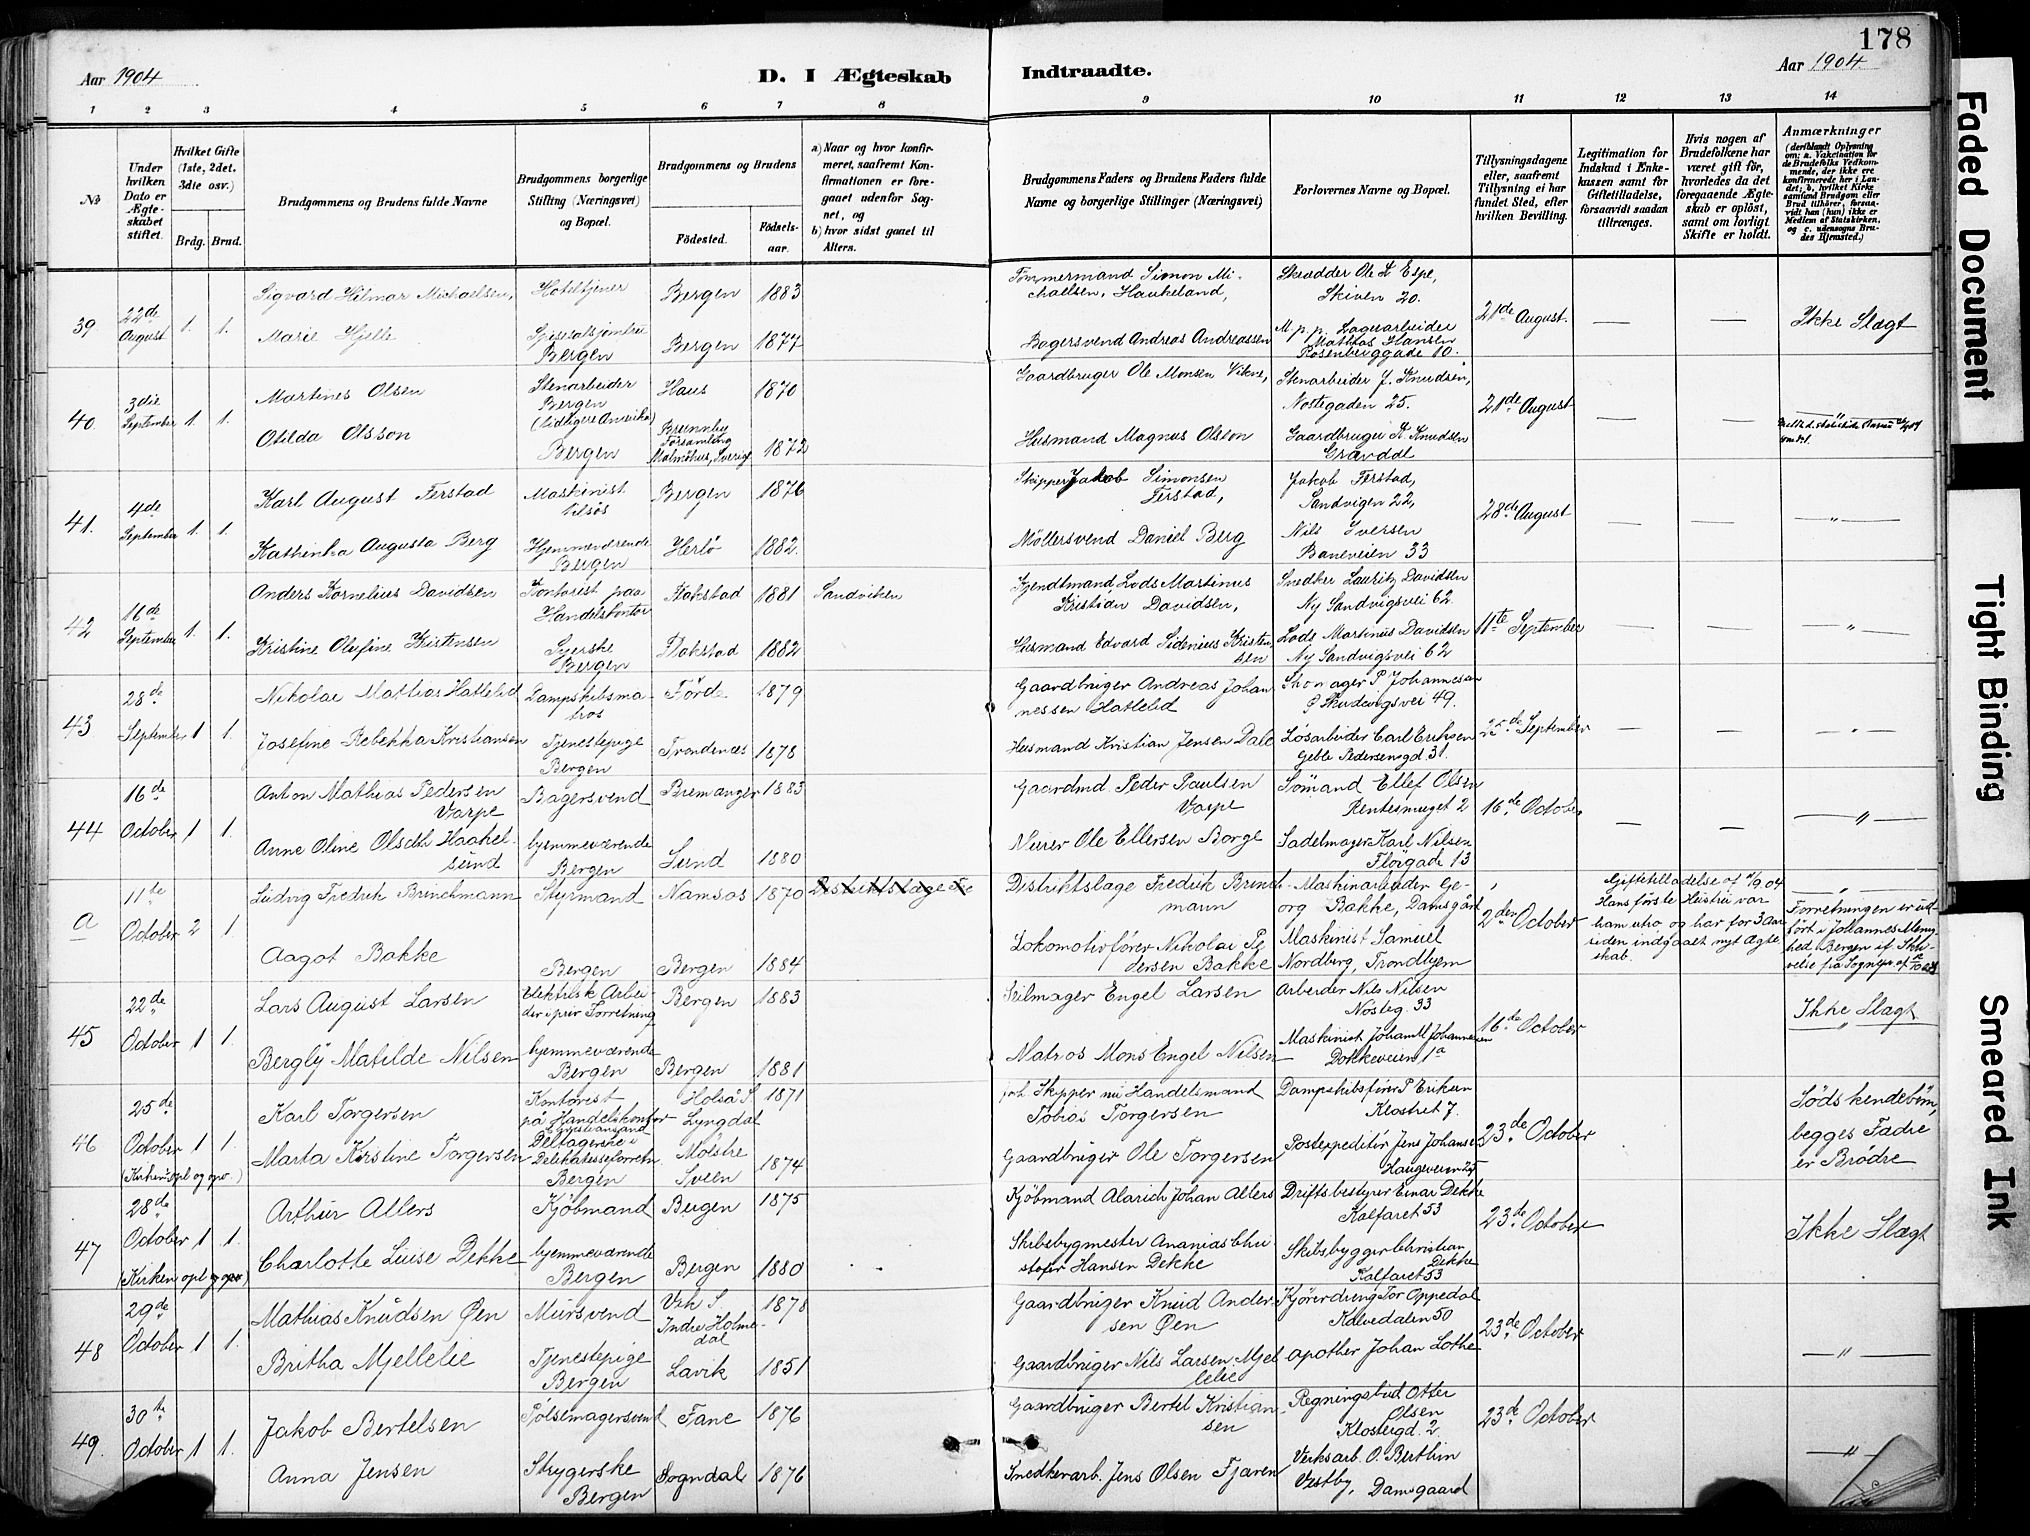 178
Aar 1904
D. I Ægteskab Indtraadte.
Aar 1904
1 2 3 4 5 6 7 8 9 10 11 12 13 14
No
Under hvilken Dato er Ægteskabet stiftet.
Hvilket Gifte (1ste, 2det, 3die osv.)
Brdg. Brud.
Brudgommens og Brudens fulde Navne
Brudgommens borgerlige Stifting (Næringsvei) og Bopæl.
Brudgommens og Brudens
Fødested. Fødselsaar.
a) Naar og hvor konfirmeret, saafremt Konfirmationen er foregaaet udenfor Sognet, og
b) hvor sidst gaaet til Alters.
Brudgommens Faders og Brudens Faders fulde Navne og borgerlige Stillinger (Næringsvei)
Forlovernes Navne og Bopæl.
Tillysningsdagene eller, saafremt Tillysning ei har fundet Sted, efter hvilken Bevilling.
Legitimation for Indskud i Enkekassen samt for Giftetilladelse, forsaavidt saadan tiltrænges.
Hvis nogen af Brudefolkene har været gift før, hvorledes da det foregaaende Ægteskab er opløst, samt om lovligt Skifte er holdt.
Anmærkninger (deriblandt Oplysning om: a. Vakcination for de Brudefolks Vedkommende, der ikke ere konfirmerede her i Landet; b. hvilket Kirkesamfund Brudgom eller Brud tilhører, forsaavidt han (hun) ikke er Medlem af Statskirken, og c. udensogns Brudes Hjemsted.)
39. 22de August 1. 1.
Sigvard Hilmar Michaelsen, Hoteltjener Bergen 1883
Marie Hjelle Bergen Bergen 1877
Tømmermand Simon Michaelsen, Haukeland,
Bagersvend Andreas Andreassen
Skrædder Ole T. Espe, Skiven 20.
M. p. p. Lagerarbeider Mathias Hansen Rosenberggade 10.
21de August. — — Ikke Slægt
40 3die September 1. 1.
Martines Olsen Stenarbeider Bergen (tidligere Amerika) Haus 1870
Otilda Olsson Bergen Brunnby Forsamling Malmöhus, Sverige 1872
Gaardbruger Ole Monsen Vikne,
Husmand Magnus Olsson
Stenarbeider J. Knudsen, Nøstegaden 25.
Gaardbruger K. Knudsen Gravdal
21de August — —
41. 4de September 1. 1.
Karl August Ferstad Maskinist Bergen 1876
Kathinka Augusta Berg Hjemmeværende Bergen Herlø 1882.
Skipper Jakob Simonsen Ferstad,
Møllersvend Daniel Berg
Jakob Ferstad, Sandvigen 22,
Nils Iversen Baneveien 33
28de August — — "
42 16de September 1. 1.
Anders Kornelius Davidsen Kontorist paa Handelskontor Stokstad 1881 Sandviken
Kristine Olufine Kristensen Syerske Bergen Stokstad 1882
Kjendtmand, Lods Martinus Kristian Davidsen,
Husmand Edvard Sidenius Kristensen
Snedker Lauritz Davidsen Ny Sandvigsvei 62.
Lods Martinus Davidsen Ny Sandvigsvei 62
11te September — — "
43 28de September 1 1.
Nikolai Mathias Hatlelid Dampskibsmatros Førde 1879
Josefine Rebekka Kristiansen Tjenestepige Bergen Trondenæs 1878
Gaardbruger Andreas Johannessen Hatlelid
Husmand Kristian Jensen Dale
Skomager P. Johannesen Skudevigsvei 49.
Løsarbeider Carl Eriksen Geble Pedersensgd. 31.
25de September — — "
44 16de October 1 1.
Anton Mathias Pedersen Varpe Bagersvend Bremanger 1883
Anne Oline Olsdth Haakelsund hjemmeværende Bergen Sund 1880
Gaardmd Peder Paulsen Varpe
Murer Ole Ellersen Borge
Sømand Ellef Olsen Rentesmuget 2
Sadelmager Karl Nilsen Florgade 13
16de October — — "
a 11te October 2 1
Ludvig Fredrik Brinchmann Styrmand Namsos 1870 Distriktslæge Fr
Aagot Bakke Bergen Bergen 1884
Distriktslæge Fredrik Brinchmann
Lokomotivfører Nikolai Pedersen Bakke
Maskinarbeider Georg Bakke, Damsgård
Maskinist Samuel Nordberg, Trondhjem
2den October
Giftetilladelse af /9 04
Hans første Hustru var ham utro og har for 3 Aar siden indgaaet nyt Ægteskab.
"
Forretningen er udført i Johannes Menighed Bergen if. Skrivelse fra Sognepr. af
45 22de October 1 1.
Lars August Larsen Elektrisk Arbeider i priv. Forretning Bergen 1883
Bergly Matilde Nilsen hjemmeværende Bergen Bergen 1881
Seilmager Engel Larsen
Matros Mons Engel Nilsen
Arbeider Nils Nilsen Nosteg. 33
Maskinist Johan M Johannesen Dokkeveien 1a
16de October Ikke Slægt
46 25de October 1 1. (Kirken opl og opv.)
Karl Torgersen Kontorist på Handelskontor Kristiansand Holsá S. Lyngdal 1871
Marta Kirstine Torgersen Deltagerske i Delikatesseforretn. Bergen Molstre Sveen 1874
fhv. Skipper nu Handelsmand Tobias Torgersen
Gaardbruger Ole Torgersen
Dampskibsfører P Eriksen Klostret 7.
Postexpeditør Jens Johanse Haugeveien 25
23de October Sødskendebørn, begges Fædre er Brødre
47 28de October 1 1. (Kirken opl og opv)
Arthur Allers Kjøbmand Bergen 1875
Charlotte Luise Dekke hjemmeværende Bergen Bergen 1880
Kjøbmand Alarich Johan Allers
Skibsbygmester Ananias Christofer Hansen Dekke
Driftsbestyrer Einar Dekke Kalfaret 53
Skibsbygger Christian Dekke Kalfaret 53
23de October Ikke Slægt
48 29de October 1 1.
Mathias Knudsen Øen Mursvend Vik S. Indre Holmedal 1878
Britha Mjellelie Tjenestepige Bergen Lavik 1851
Gaardbruger Knud Andersen Øen
Gaardbruger Nils Larsen Mjellelie
Kjøredreng Tor Oppedal Kalvedalen 50
Apother Johan Lothe
23de October "
49. 30te October 1 1.
Jakob Bertelsen Pølsemagersvend Fane 1876
Anna Jensen Strygerske Bergen Sogndal 1876
Gaardbruger Bertel Kristiansen
Snedkerarb. Jens Olsen Fjæren
Regningsbud Otter Olsen Klostergd. 2.
Verksarb. O. Berthin Vestby, Damsgaard
23de October "
Faded Document
Tight Binding
Smeared Ink